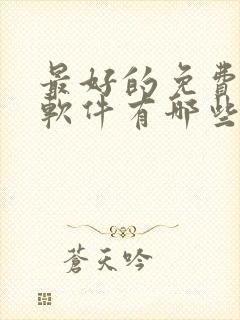 最好的免費
軟件有哪些
蒼天吟